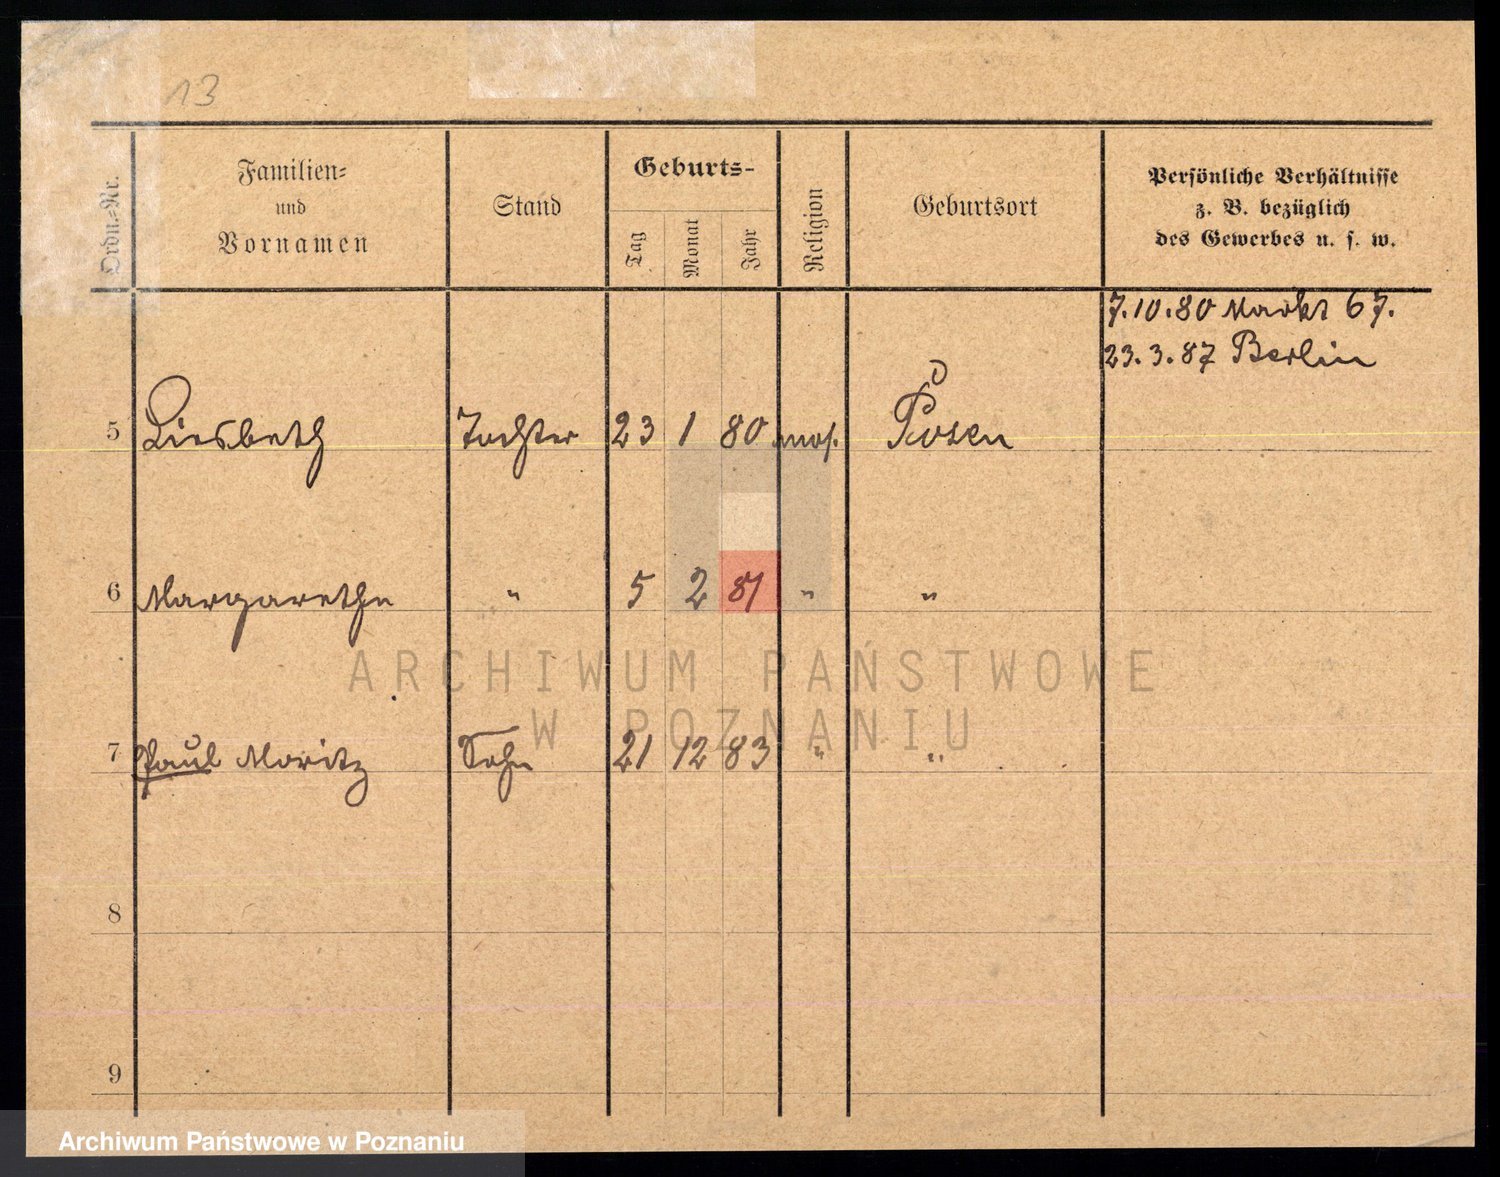 13
Ordn.=Nr.
Familien=
und
Vornamen
Stand
Geburts-
Tag
Monat
Jahr
Religion
Geburtsort
Persönliche Verhältnisse
z. B. bezüglich
des Gewerbes u. s. w.
7.10.80 Markt 67.
23.3.87 Berlin
5 Liesbeth Tochter 23 1 80 mos. Posen
6 Margarethe " 5 2 81 " "
ARCHIWUM PAŃSTWOWE
W POZNANIU
7 Paul Moritz Sohn 21 12 83 " "
8
9
Archiwum Państwowe w Poznaniu